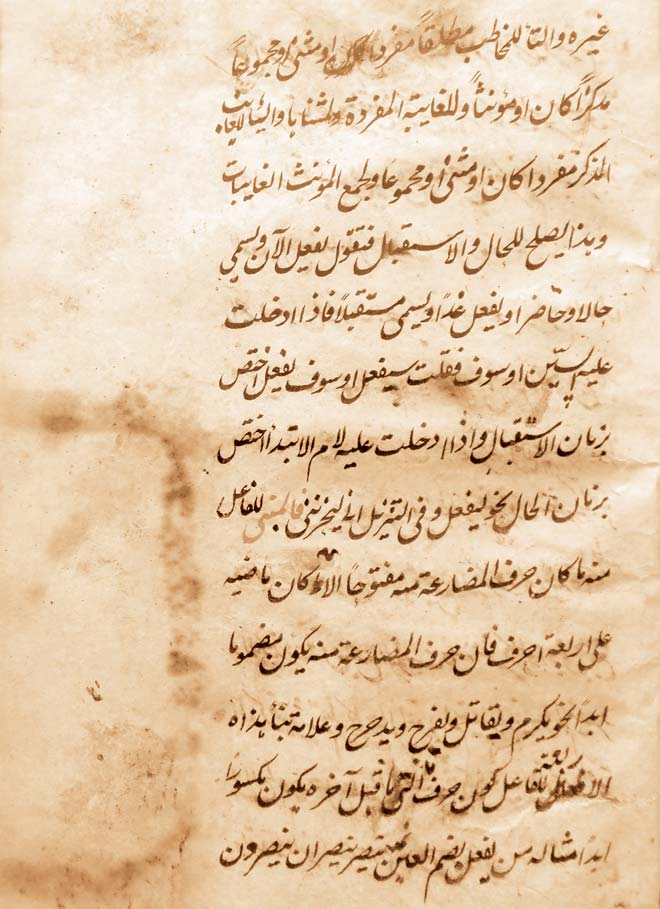 غيره والتأ للمخاطب مطلقاً مفرداً كان او مثنى او مجموعاً
مذكراً كان او مؤنثاً وللغايبة المفردة ولمثناها واليأ للغايب
المذكر مفردا كان او مثنى او مجموعا ولجمع المؤنث الغايبات
وهذا يصلح للحال والاستقبال فتقول يفعل الآن ويسمي
حالا وحاضرا ويفعل غدًا ويسمى مستقبلاً فاذا ادخلت
عليه السّين او سوف فقلت سيفعل او سوف يفعل اختص
بزمان الاستقبال واذا ادخلت عليه لام الابتدأ اختص
بزمان الحال نحو ليفعل وفى التنزيل انى ليحزننى فالمبنى للفاعل
منه ما كان حرف المضارعة منه مفتوحًا الا ما كان ماضيه
على اربعة احرف فان حرف المضارعة منه يكون مضموما
ابدًا نحو يكرم ويقاتل ويفرح ويدحرج وعلامة بنأ هذه
الاربعة للفاعل كون حرف التى ما قبل آخره يكون مكسورًا
ابدًا مثاله من يفعل بضم العين ينصر ينصران ينصرون